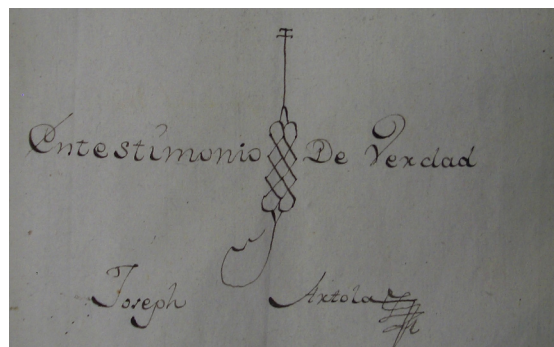 Entestimonio De Verdad
Joseph Artola